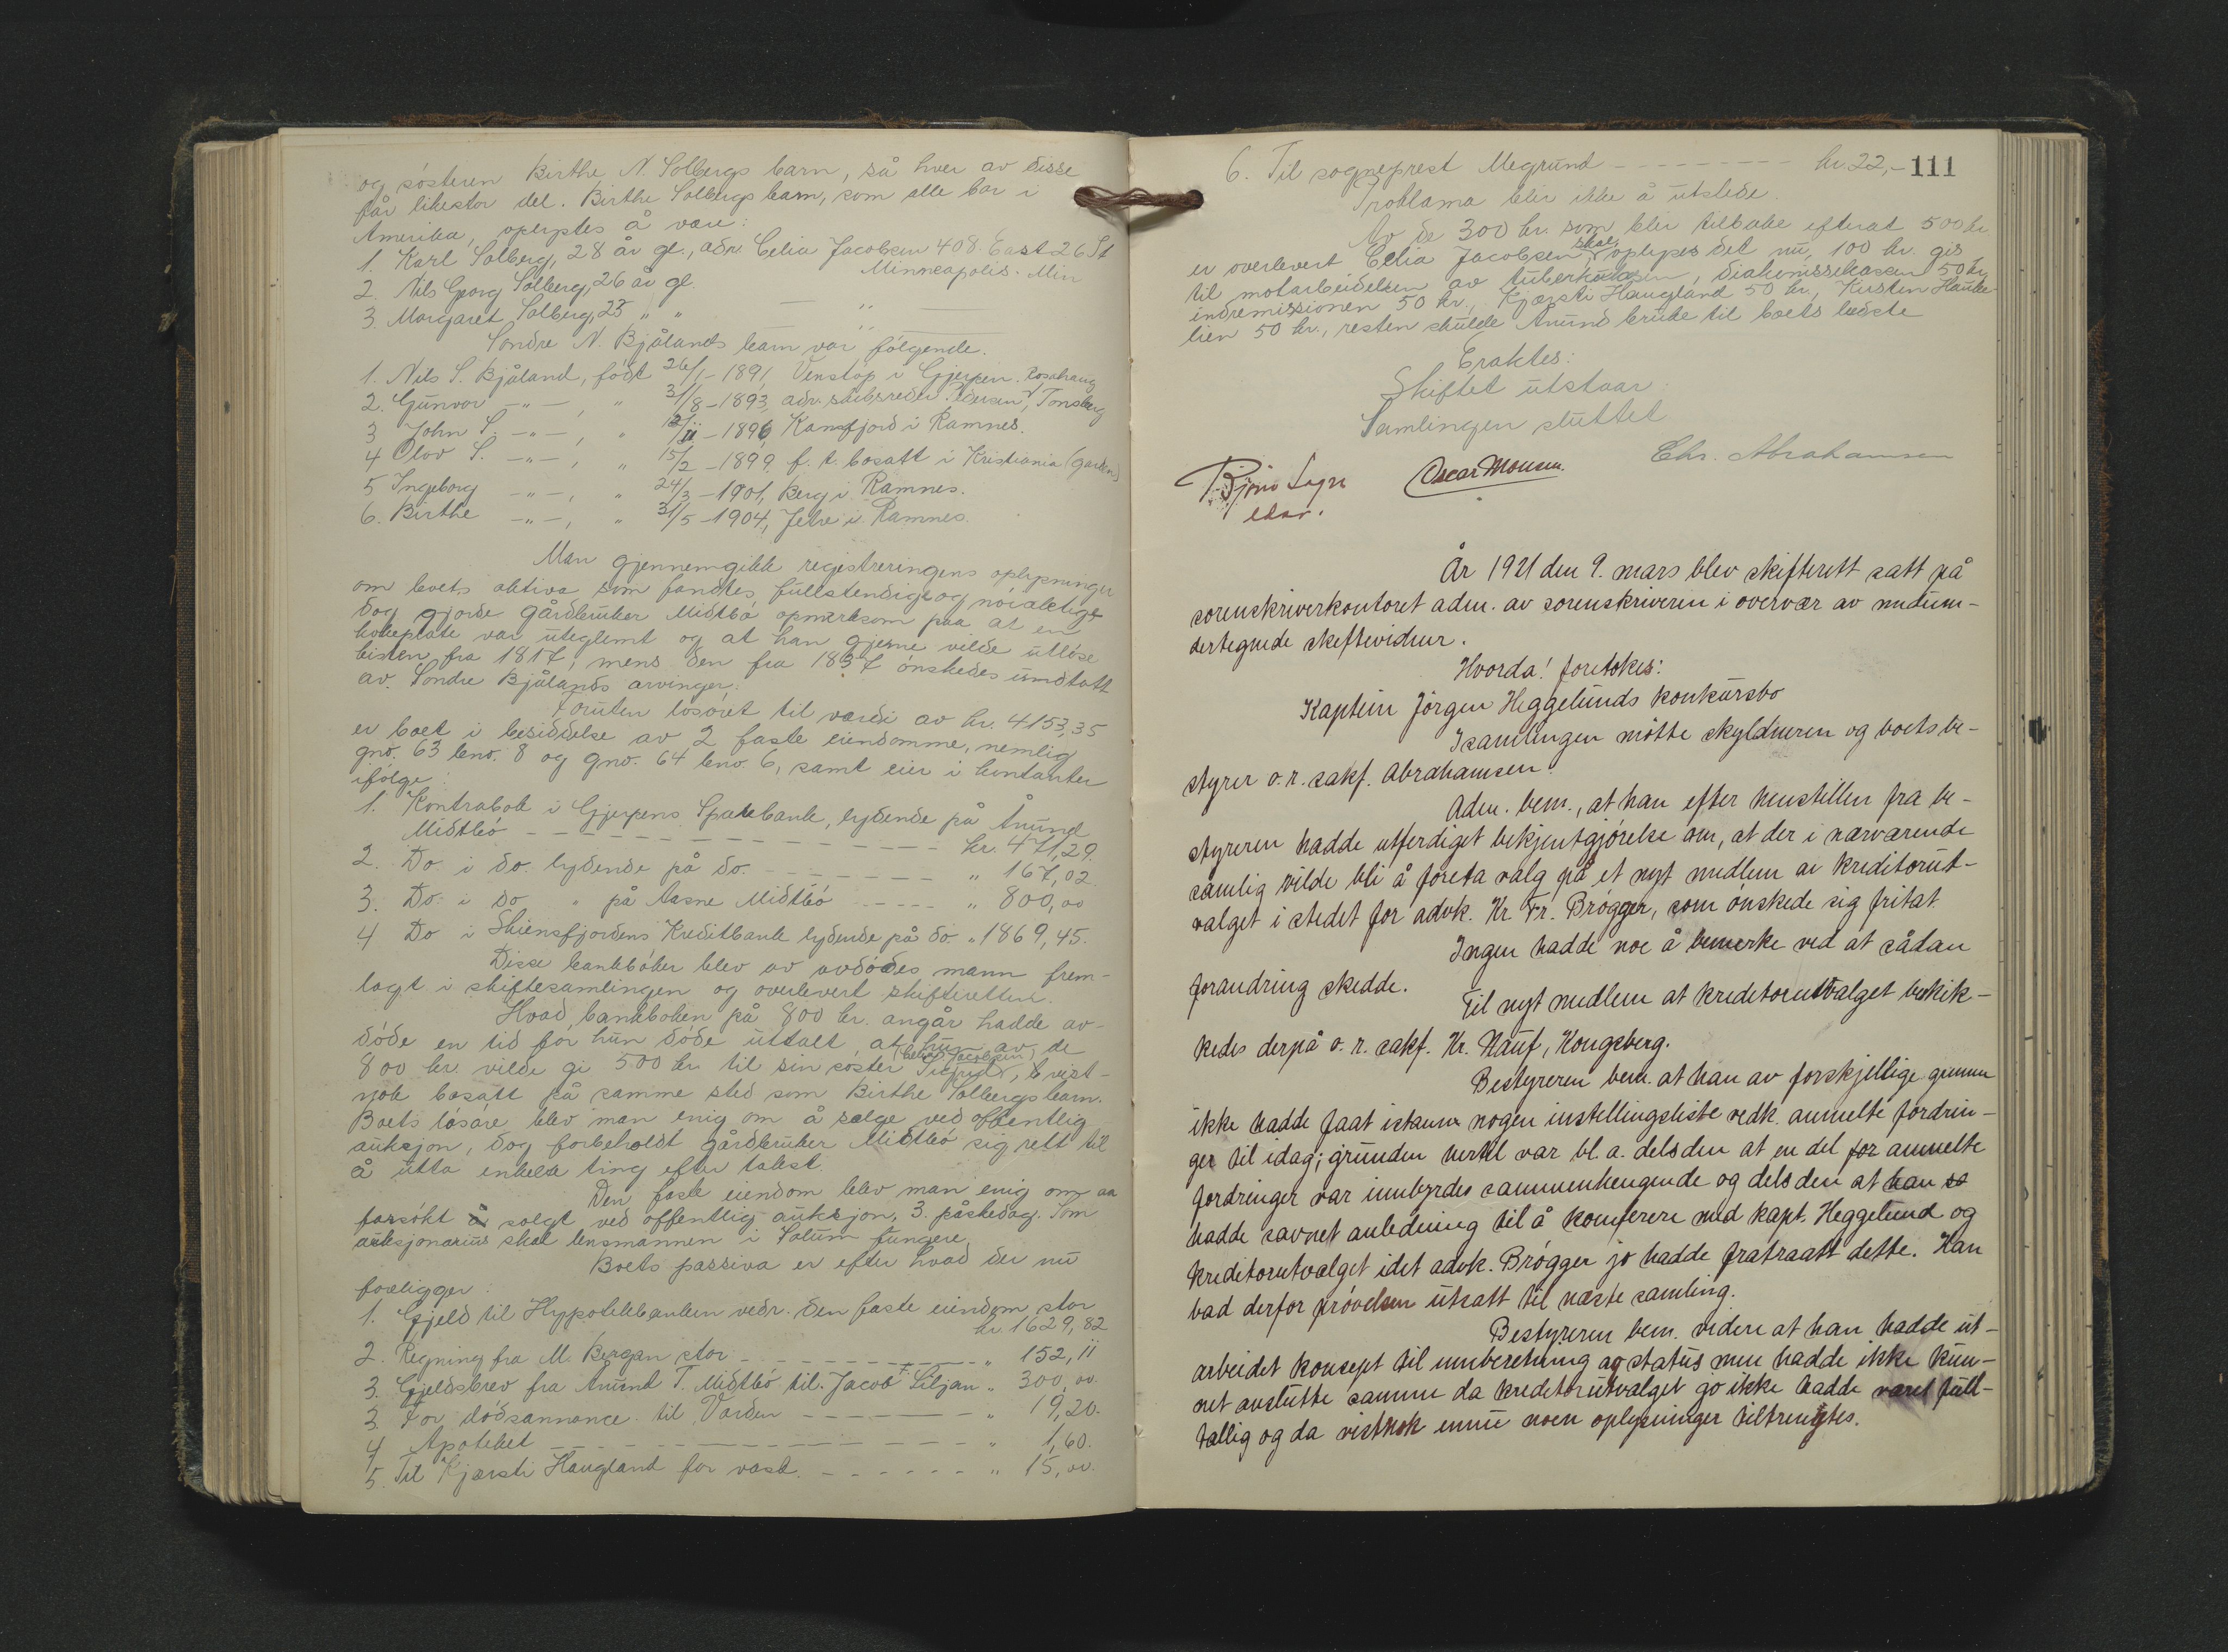 og søsteren Birthe N. Solbergs barn, så hver av disse
får likestor del. Birthe Solbergs barn, som alle bor i
Amerika, oplystes å være:
1. Karl Solberg, 28 år gl., adr. Celia Jacobsen 408. East 26 St
Minneapolis. Min
2. Nils Georg Solberg, 26 år gl. — „ —
3. Margaret Solberg, 23 „ „ — „ —
Sondre N. Bjålands barn var følgende.
1. Nils S. Bjåland, født 26/1 - 1891, Venstøp i Gjerpen. Rosahaug
2. Gunvor —„—, „ 31/8 - 1893, adr. skibsreder Pedersen, Tønsberg
3 John S. —„—, „ 12/11 - 1896, Kamfjord i Ramnes.
4 Olav S. —„—, „ 15/2 - 1899. f. t. bosatt i Kristiania (garden)
5 Ingeborg —„—, „ 24/3 - 1901, Berg i Ramnes.
6. Birthe —„—, „ 31/5 - 1904, Jelve i Ramnes.
Man gjennemgikk registreringens oplysninger
om boets aktiva som fandtes fullstendige og nøiaktige
dog gjorde gårdbruker Midtbø opmerksom paa at en
kokeplate var uteglemt og at han gjerne vilde utløse
bislen fra 1817, mens den fra 1837 ønskedes undtatt
av Sondre Bjålands arvinger.
Foruten løsøret til værdi av kr. 4153,35
er boet i besiddelse av 2 faste eiendomme, nemlig
gno. 63 bno. 8 og gno. 64 bno. 6, samt eier i kontanter
ifølge:
1. Kontrabok i Gjerpens Sparebank, lydende på Ånund
Midtbø - - - - - - - - - - kr. 471,29.
2. Do. i do. lydende på do. - - - - - - - „ 167,02.
3. Do. i do „ på Aasne Midtbø - - - - - „ 800,00
4 Do i Skiensfjordens Kreditbank lydende på do. „ 1869,45.
Disse bankbøker blev av avdødes mann frem-
lagt i skiftesamlingen og overlevert skifteretten.
Hvad bankboken på 800 kr. angår hadde av-
døde en tid før hun døde uttalt, at hun av de
(Celia Jacobsen)
800 kr. vilde gi 500 kr. til sin søster Siegrid, visst-
nok bosatt på samme sted som Birthe Solbergs barn.
Boets løsøre blev man enig om å selge ved offentlig
auksjon, dog forbeholdt gårdbruker Midtbø sig rett til
å utta enkelte ting efter takst.
Den faste eiendom blev man enig om aa
forsøkt å solgt ved offentlig auksjon, 3. påskedag. Som
auksjonarius skal lensmannen i Solum fungere.
Boets passiva er efter hvad der nu
foreligger:
1. Gjeld til Hypotekbanken vedr. den faste eiendom, stor
kr 1629,82
2. Regning fra M. Bergan stor - - - - - - - „ 152,11
3. Gjeldsbrev fra Anund T. Midtbø til Jacob T. Liljan „ 300,00.
3 For dødsannonce til Varden - - - - - - „ 19,20.
4 Apoteket - - - - - - - - - - „ 1,60.
5. Til Kjærsti Haugland for vask. - - - - - - „ 15,00.
6. Til sogneprest Megrund - - - - - - - - kr. 22,-
111
Proklama blir ikke å utstede.
Av de 300 kr. som blir tilbake efterat 500 kr.
er overlevert Celia Jacobsen skal, oplyses det nu, 100 kr. gis
til motarbeidelsen av tuberkulosen, diakonissekassen 50 kr,
indremissionen 50 kr., Kjærsti Haugland 50 kr., Kirsten Hauke-
lien 50 kr., resten skulde Anund bruke til boets bedste
Eraktes:
Skiftet utstaar.
Samlingen sluttet
Chr. Abrahamsen
Oscar Monsen.
År 1921 den 9. mars blev skifterett satt på
sorenskriverkontoret adm. av sorenskriveren i overvær av medun-
dertegnede skiftevidner.
Hvorda! foretokes:
Kaptein Jørgen Heggelunds konkursbo
I samlingen møtte skyldneren og boets be-
styrer o.r. sakf. Abrahamsen.
Adm. bem., at han efter henstillen fra be-
styreren hadde utferdiget bekjentgjørelse om, at der i nærværende
samlig vilde bli å foreta valg på et nyt medlem av kreditorut-
valget i stedet for advk. Kr. Fr. Brøgger, som ønskede sig fritat.
Ingen hadde noe å bemerke ved at sådan
forandring skedde.
Til nyt medlem at kreditorutvalget beskik-
kedes derpå o. r. sakf. Kr. Hauf, Kongsberg.
Bestyreren bem. at han av forskjellige grunne
ikke hadde faat istann nogen instellingsliste vedk. anmelte fordrin-
ger til idag; grunden hertil var bl. a. dels den at en del for anmelte
fordringer var innbyrdes sammenhengende og dels den at han so
hadde savnet anledning til å konferere med kapt. Heggelund og
kreditorutvalget idet advk. Brøgger jo hadde fratraatt dette. Han
bad derfor prøvelsen utsatt til næste samling.
Bestyreren bem. videre at han hadde ut-
arbeidet konsept til innberetning og status men hadde ikke kun-
net avslutte samme da kreditorutvalget jo ikke hadde været full-
tallig og da vistnok ennu noen oplysninger tiltrengtes.